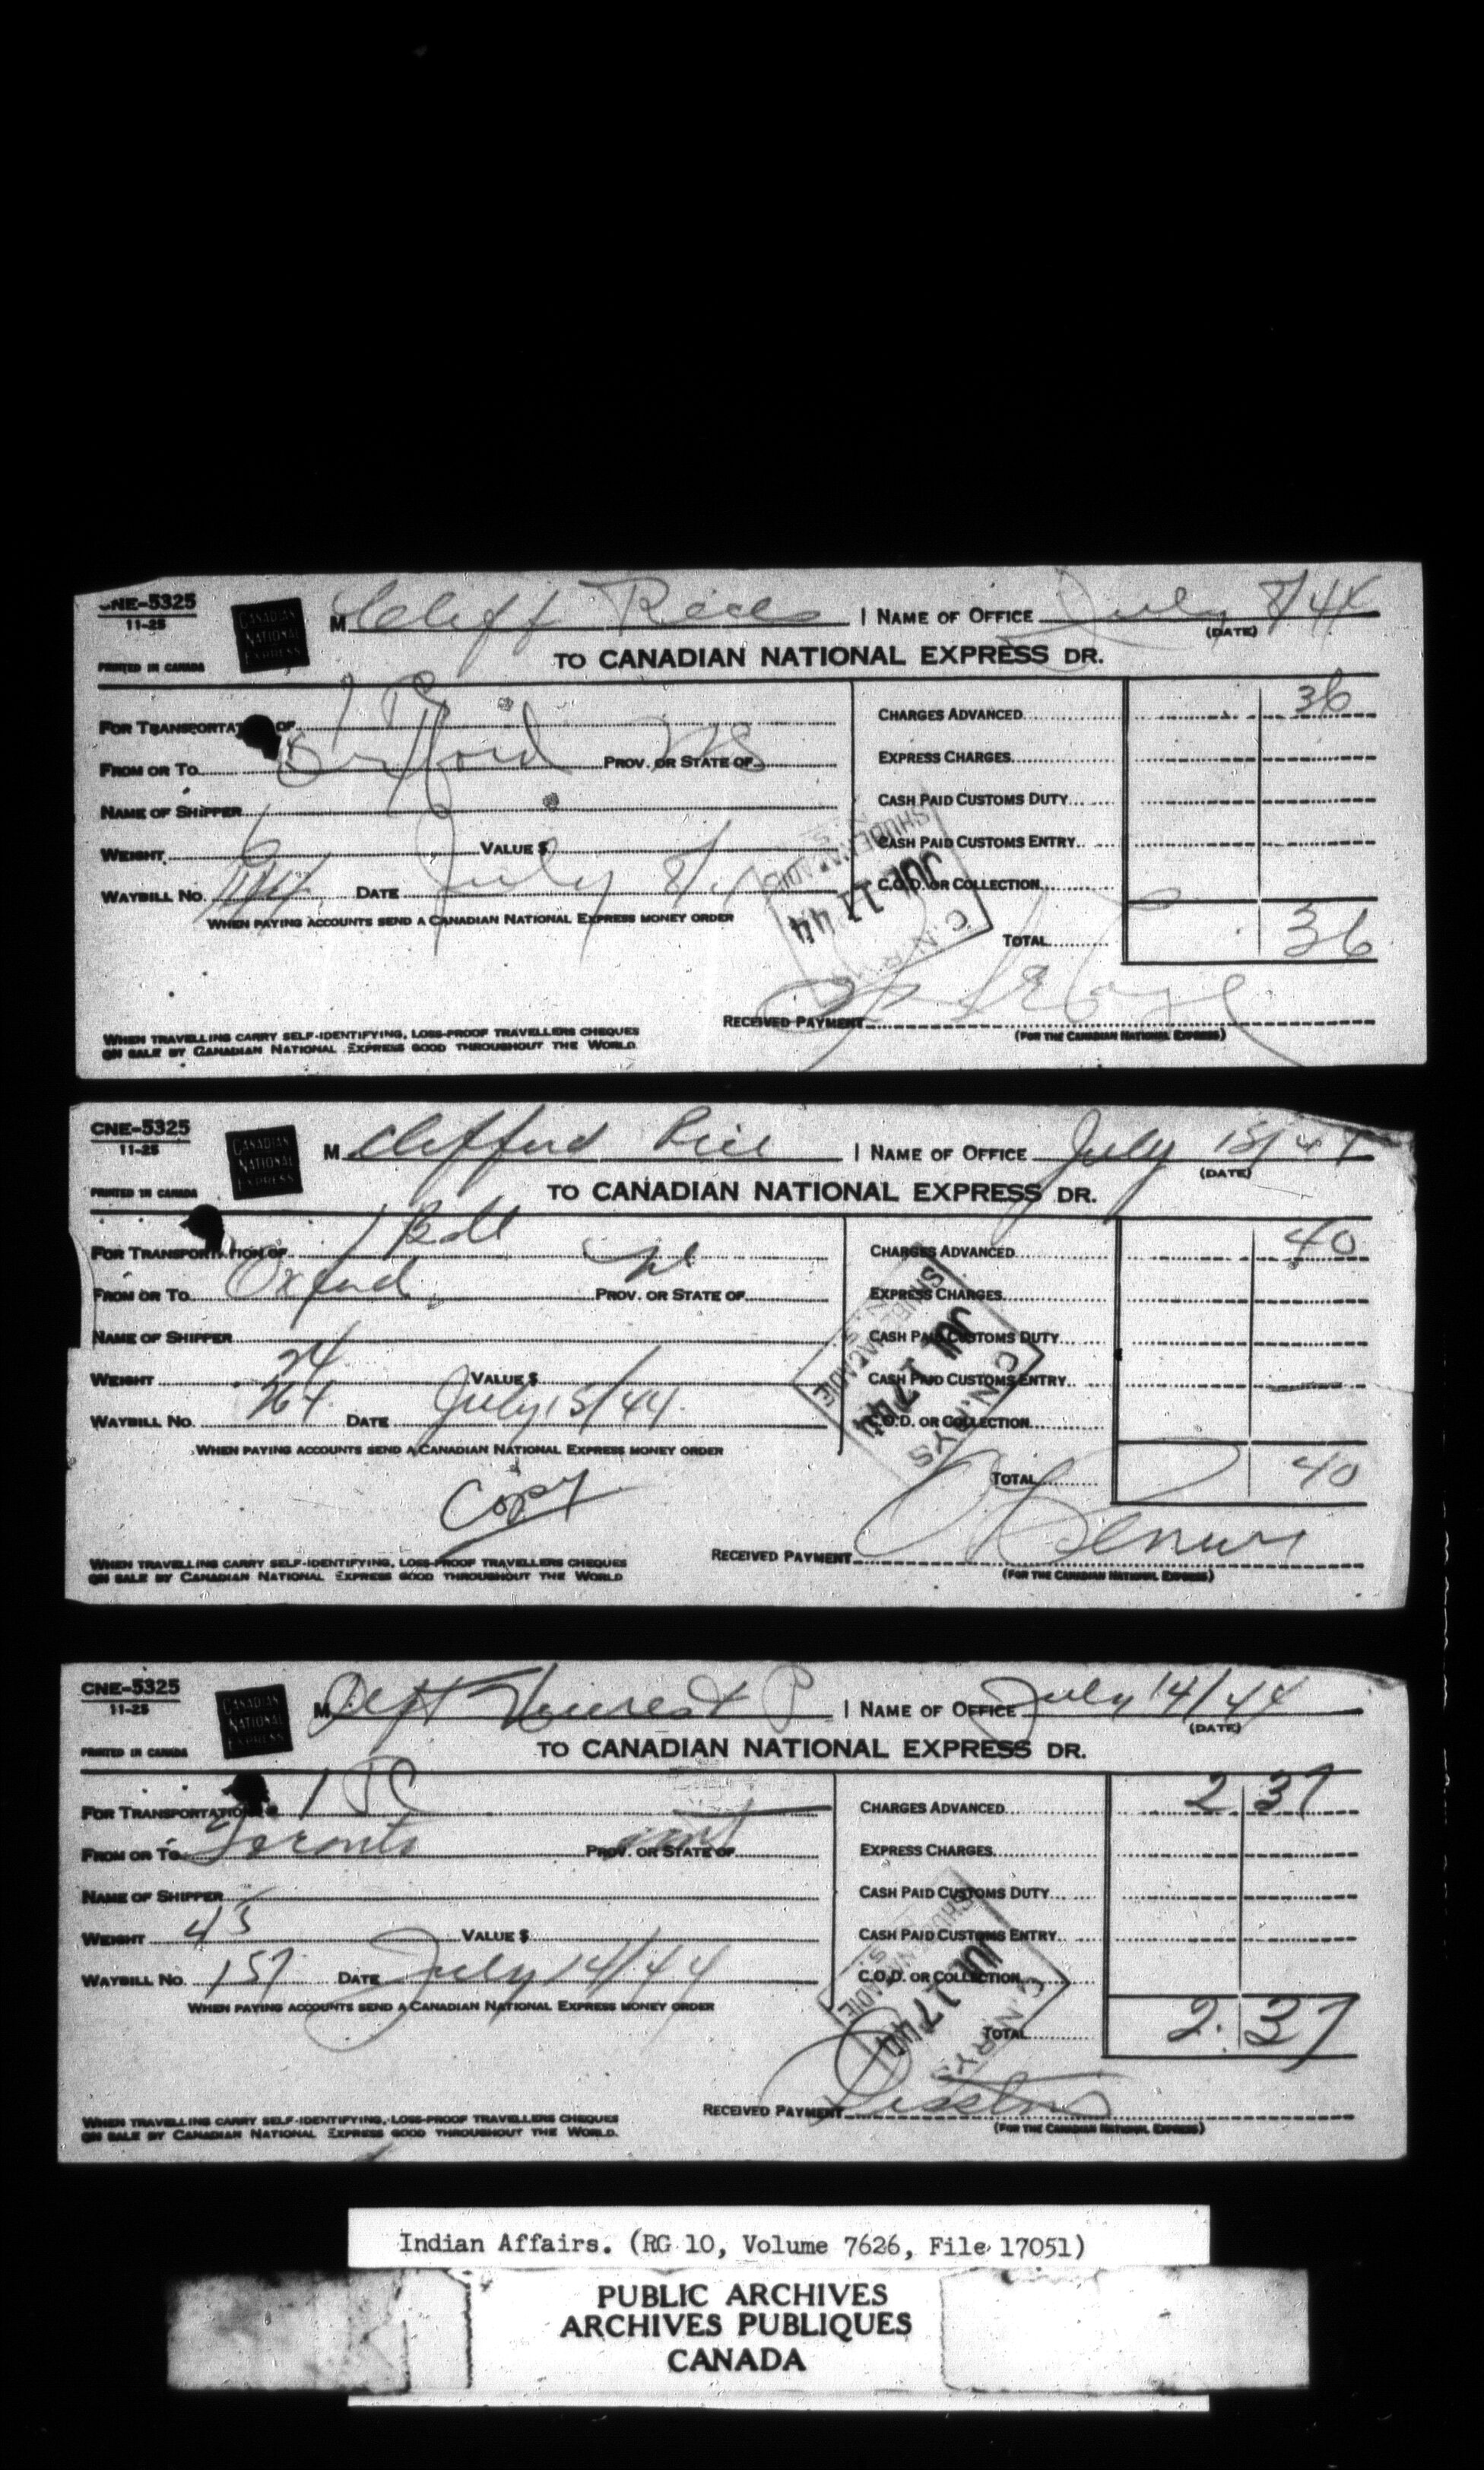 CNE-5325
11-25
PRINTED IN CANADA
CANADIAN
NATIONAL
EXPRESS
M Cliff Rees | NAME OF OFFICE July 8/44
(DATE)
TO CANADIAN NATIONAL EXPRESS DR.
FOR TRANSPORTAT OF 1 P
CHARGES ADVANCED 36
FROM OR TO Oxford PROV. OR STATE OF NS
EXPRESS CHARGES
NAME OF SHIPPER
CASH PAID CUSTOMS DUTY
WEIGHT 6 VALUE $
CASH PAID CUSTOMS ENTRY
WAYBILL NO. DATE July 8/
C.O.D. OR COLLECTION
SHUBENACADIE
JUL 11 44
C.N.RYS
WHEN PAYING ACCOUNTS SEND A CANADIAN NATIONAL EXPRESS MONEY ORDER
TOTAL 36
RECEIVED PAYMENT
(FOR THE CANADIAN NATIONAL EXPRESS)
WHEN TRAVELLING CARRY SELF-IDENTIFYING, LOSS-PROOF TRAVELLERS CHEQUES
ON SALE BY CANADIAN NATIONAL EXPRESS GOOD THROUGHOUT THE WORLD
CNE-5325
11-25
PRINTED IN CANADA
CANADIAN
NATIONAL
EXPRESS
M Clifford Rice | NAME OF OFFICE July 15/44
(DATE)
TO CANADIAN NATIONAL EXPRESS DR.
FOR TRANSPORTATION OF 1 Bdl
CHARGES ADVANCED 40
FROM OR TO Oxford PROV. OR STATE OF
EXPRESS CHARGES
NAME OF SHIPPER
CASH PAID CUSTOMS DUTY
WEIGHT 24 VALUE $
CASH PAID CUSTOMS ENTRY
WAYBILL NO. 264 DATE July 15/44
C.O.D. OR COLLECTION
SHUBENACADIE
JUL 17 44
C.N.RYS
WHEN PAYING ACCOUNTS SEND A CANADIAN NATIONAL EXPRESS MONEY ORDER
Copy
TOTAL 40
RECEIVED PAYMENT
(FOR THE CANADIAN NATIONAL EXPRESS)
WHEN TRAVELLING CARRY SELF-IDENTIFYING, LOSS-PROOF TRAVELLERS CHEQUES
ON SALE BY CANADIAN NATIONAL EXPRESS GOOD THROUGHOUT THE WORLD
CNE-5325
11-25
PRINTED IN CANADA
CANADIAN
NATIONAL
EXPRESS
M | NAME OF OFFICE July 14/44
(DATE)
TO CANADIAN NATIONAL EXPRESS DR.
FOR TRANSPORTATION 1 PC
CHARGES ADVANCED 2 37
FROM OR TO Toronto PROV. OR STATE OF Ont
EXPRESS CHARGES
NAME OF SHIPPER
CASH PAID CUSTOMS DUTY
WEIGHT 43 VALUE $
CASH PAID CUSTOMS ENTRY
WAYBILL NO. 157 DATE July 14/44
C.O.D. OR COLLECTION
SHUBENACADIE
JUL 17 44
C.N.RYS
WHEN PAYING ACCOUNTS SEND A CANADIAN NATIONAL EXPRESS MONEY ORDER
TOTAL 2.37
RECEIVED PAYMENT
(FOR THE CANADIAN NATIONAL EXPRESS)
WHEN TRAVELLING CARRY SELF-IDENTIFYING, LOSS-PROOF TRAVELLERS CHEQUES
ON SALE BY CANADIAN NATIONAL EXPRESS GOOD THROUGHOUT THE WORLD.
Indian Affairs. (RG 10, Volume 7626, File 17051)
PUBLIC ARCHIVES
ARCHIVES PUBLIQUES
CANADA